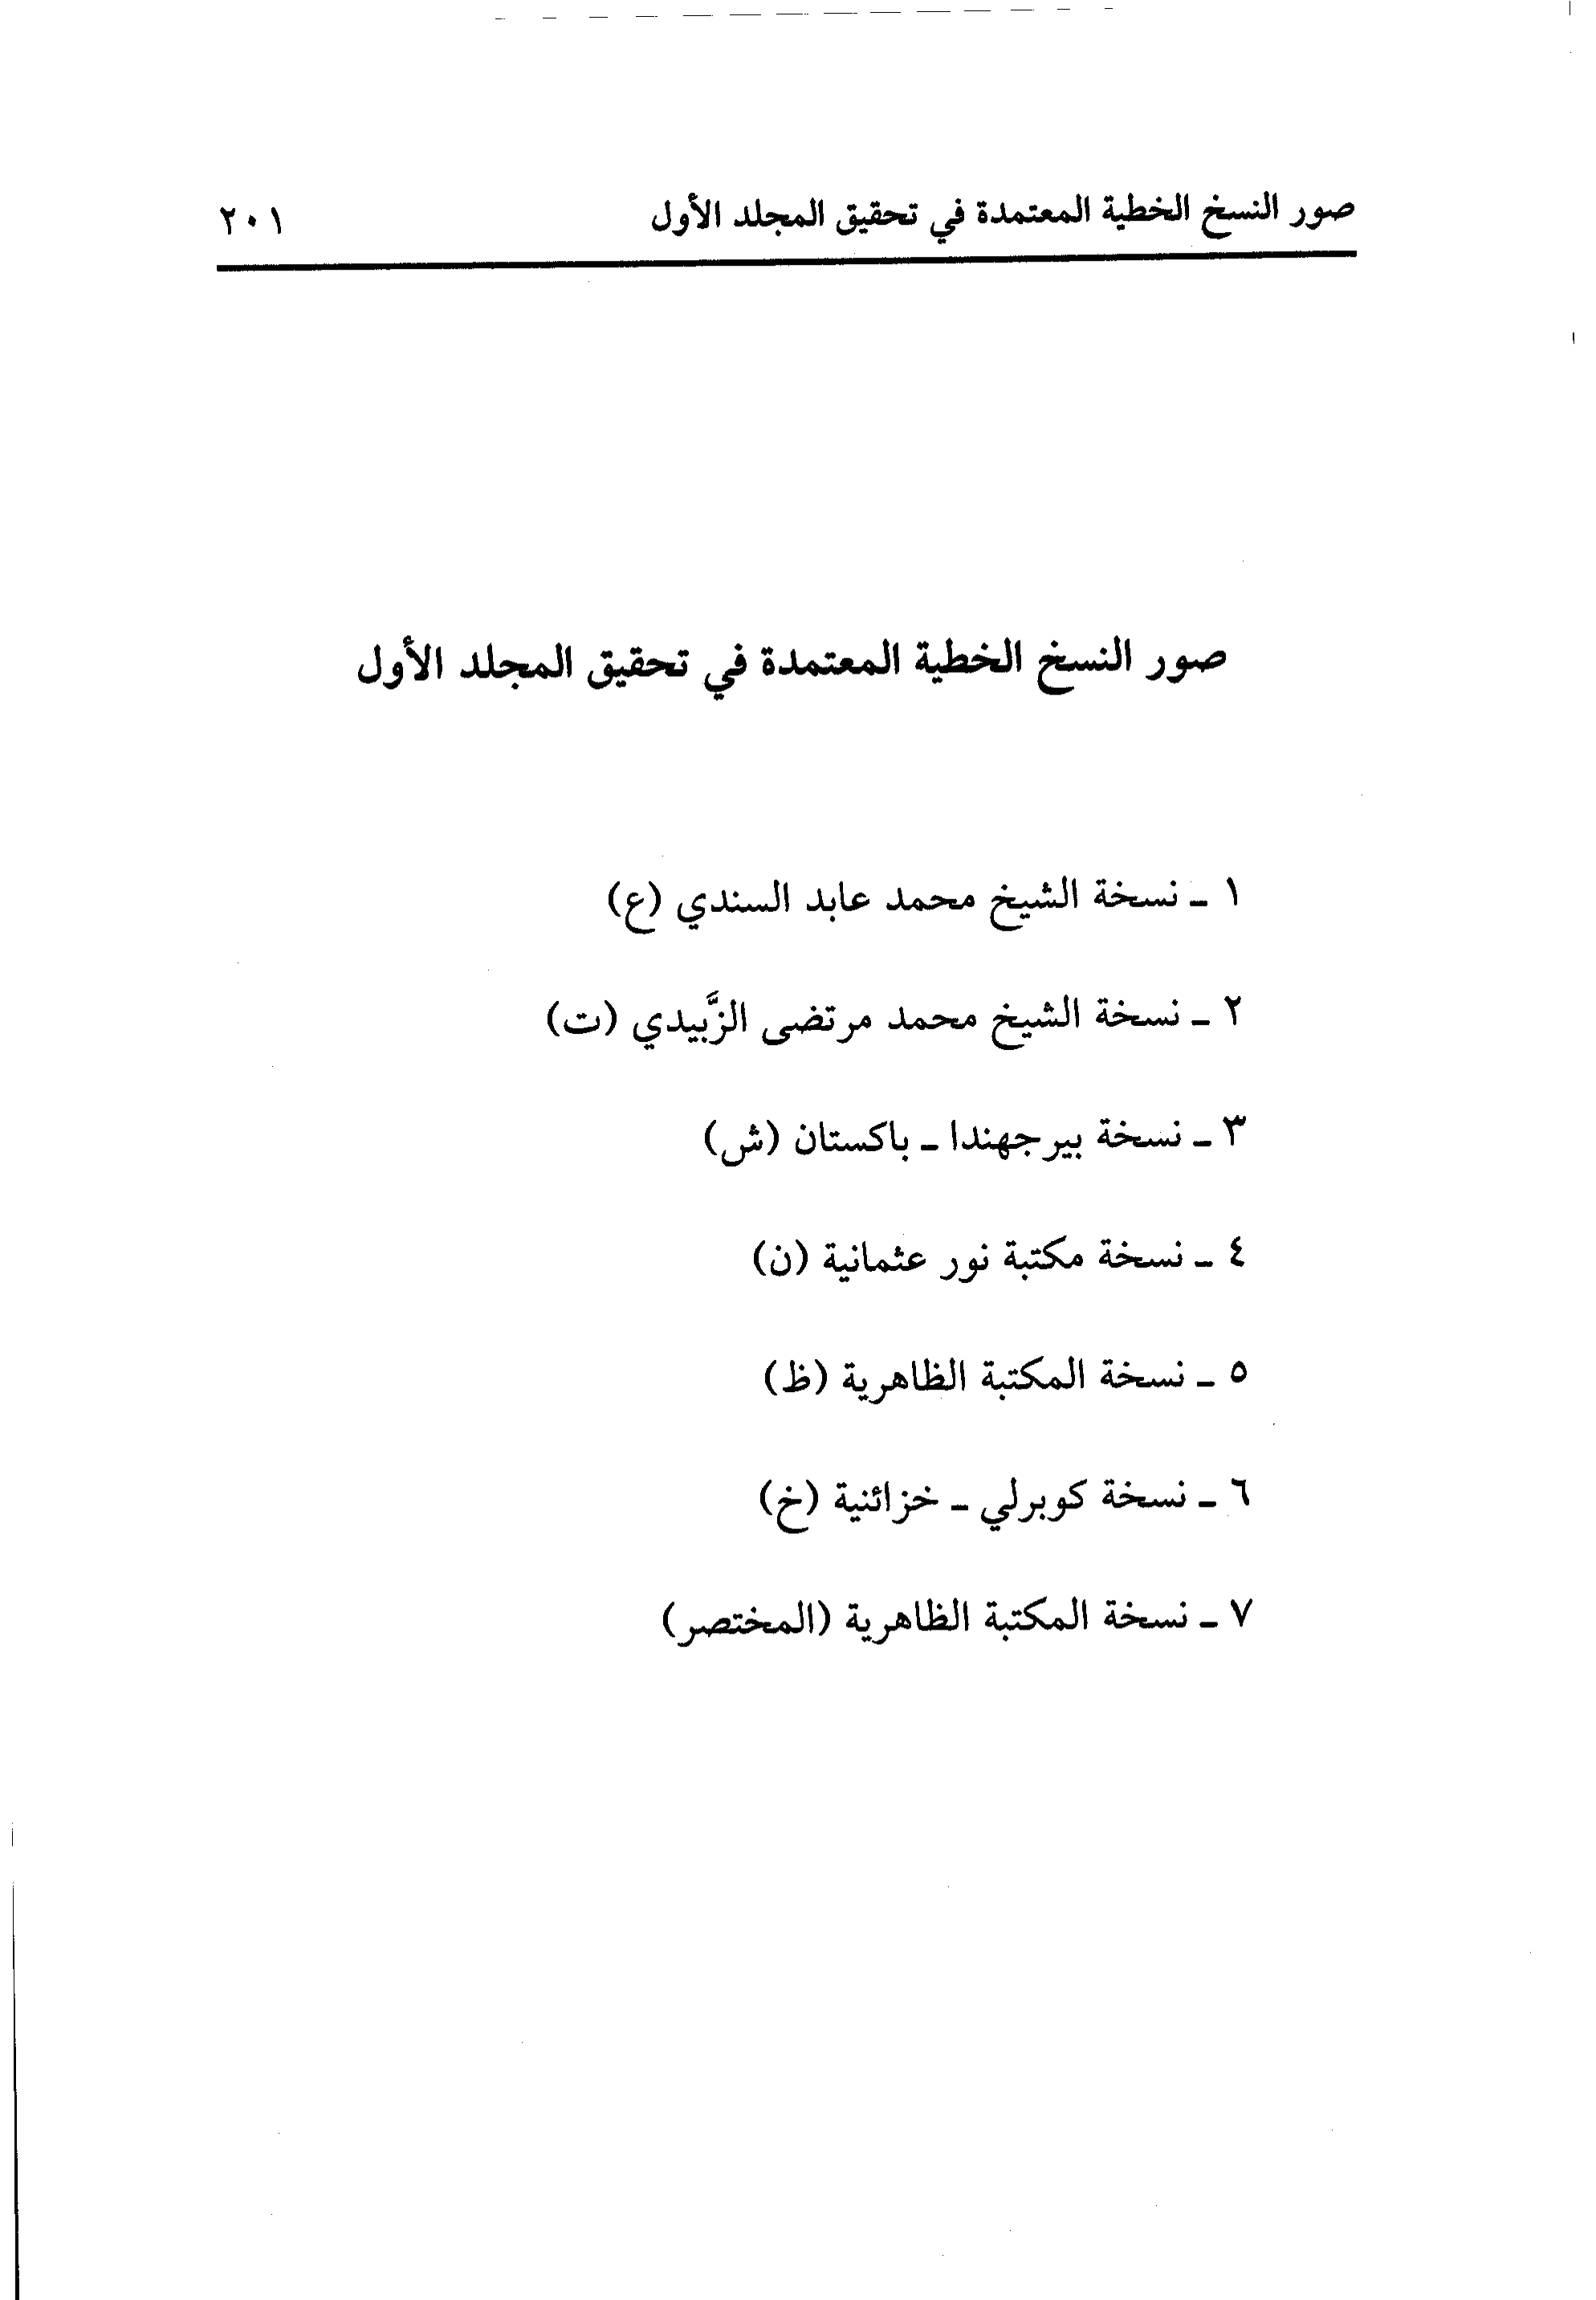 صور النسخ الخطية المعتمدة في تحقيق المجلد الأول ٢٠١
صور النسخ الخطية المعتمدة في تحقيق المجلد الأول
١ ـ نسخة الشيخ محمد عابد السندي (ع)
٢ ـ نسخة الشيخ محمد مرتضى الزَّبيدي (ت)
٣ ـ نسخة بيرجهندا ـ باكستان (ش)
٤ ـ نسخة مكتبة نور عثمانية (ن)
٥ ـ نسخة المكتبة الظاهرية (ظ)
٦ ـ نسخة كوبرلي ـ خزائنية (خ)
٧ ـ نسخة المكتبة الظاهرية (المختصر)